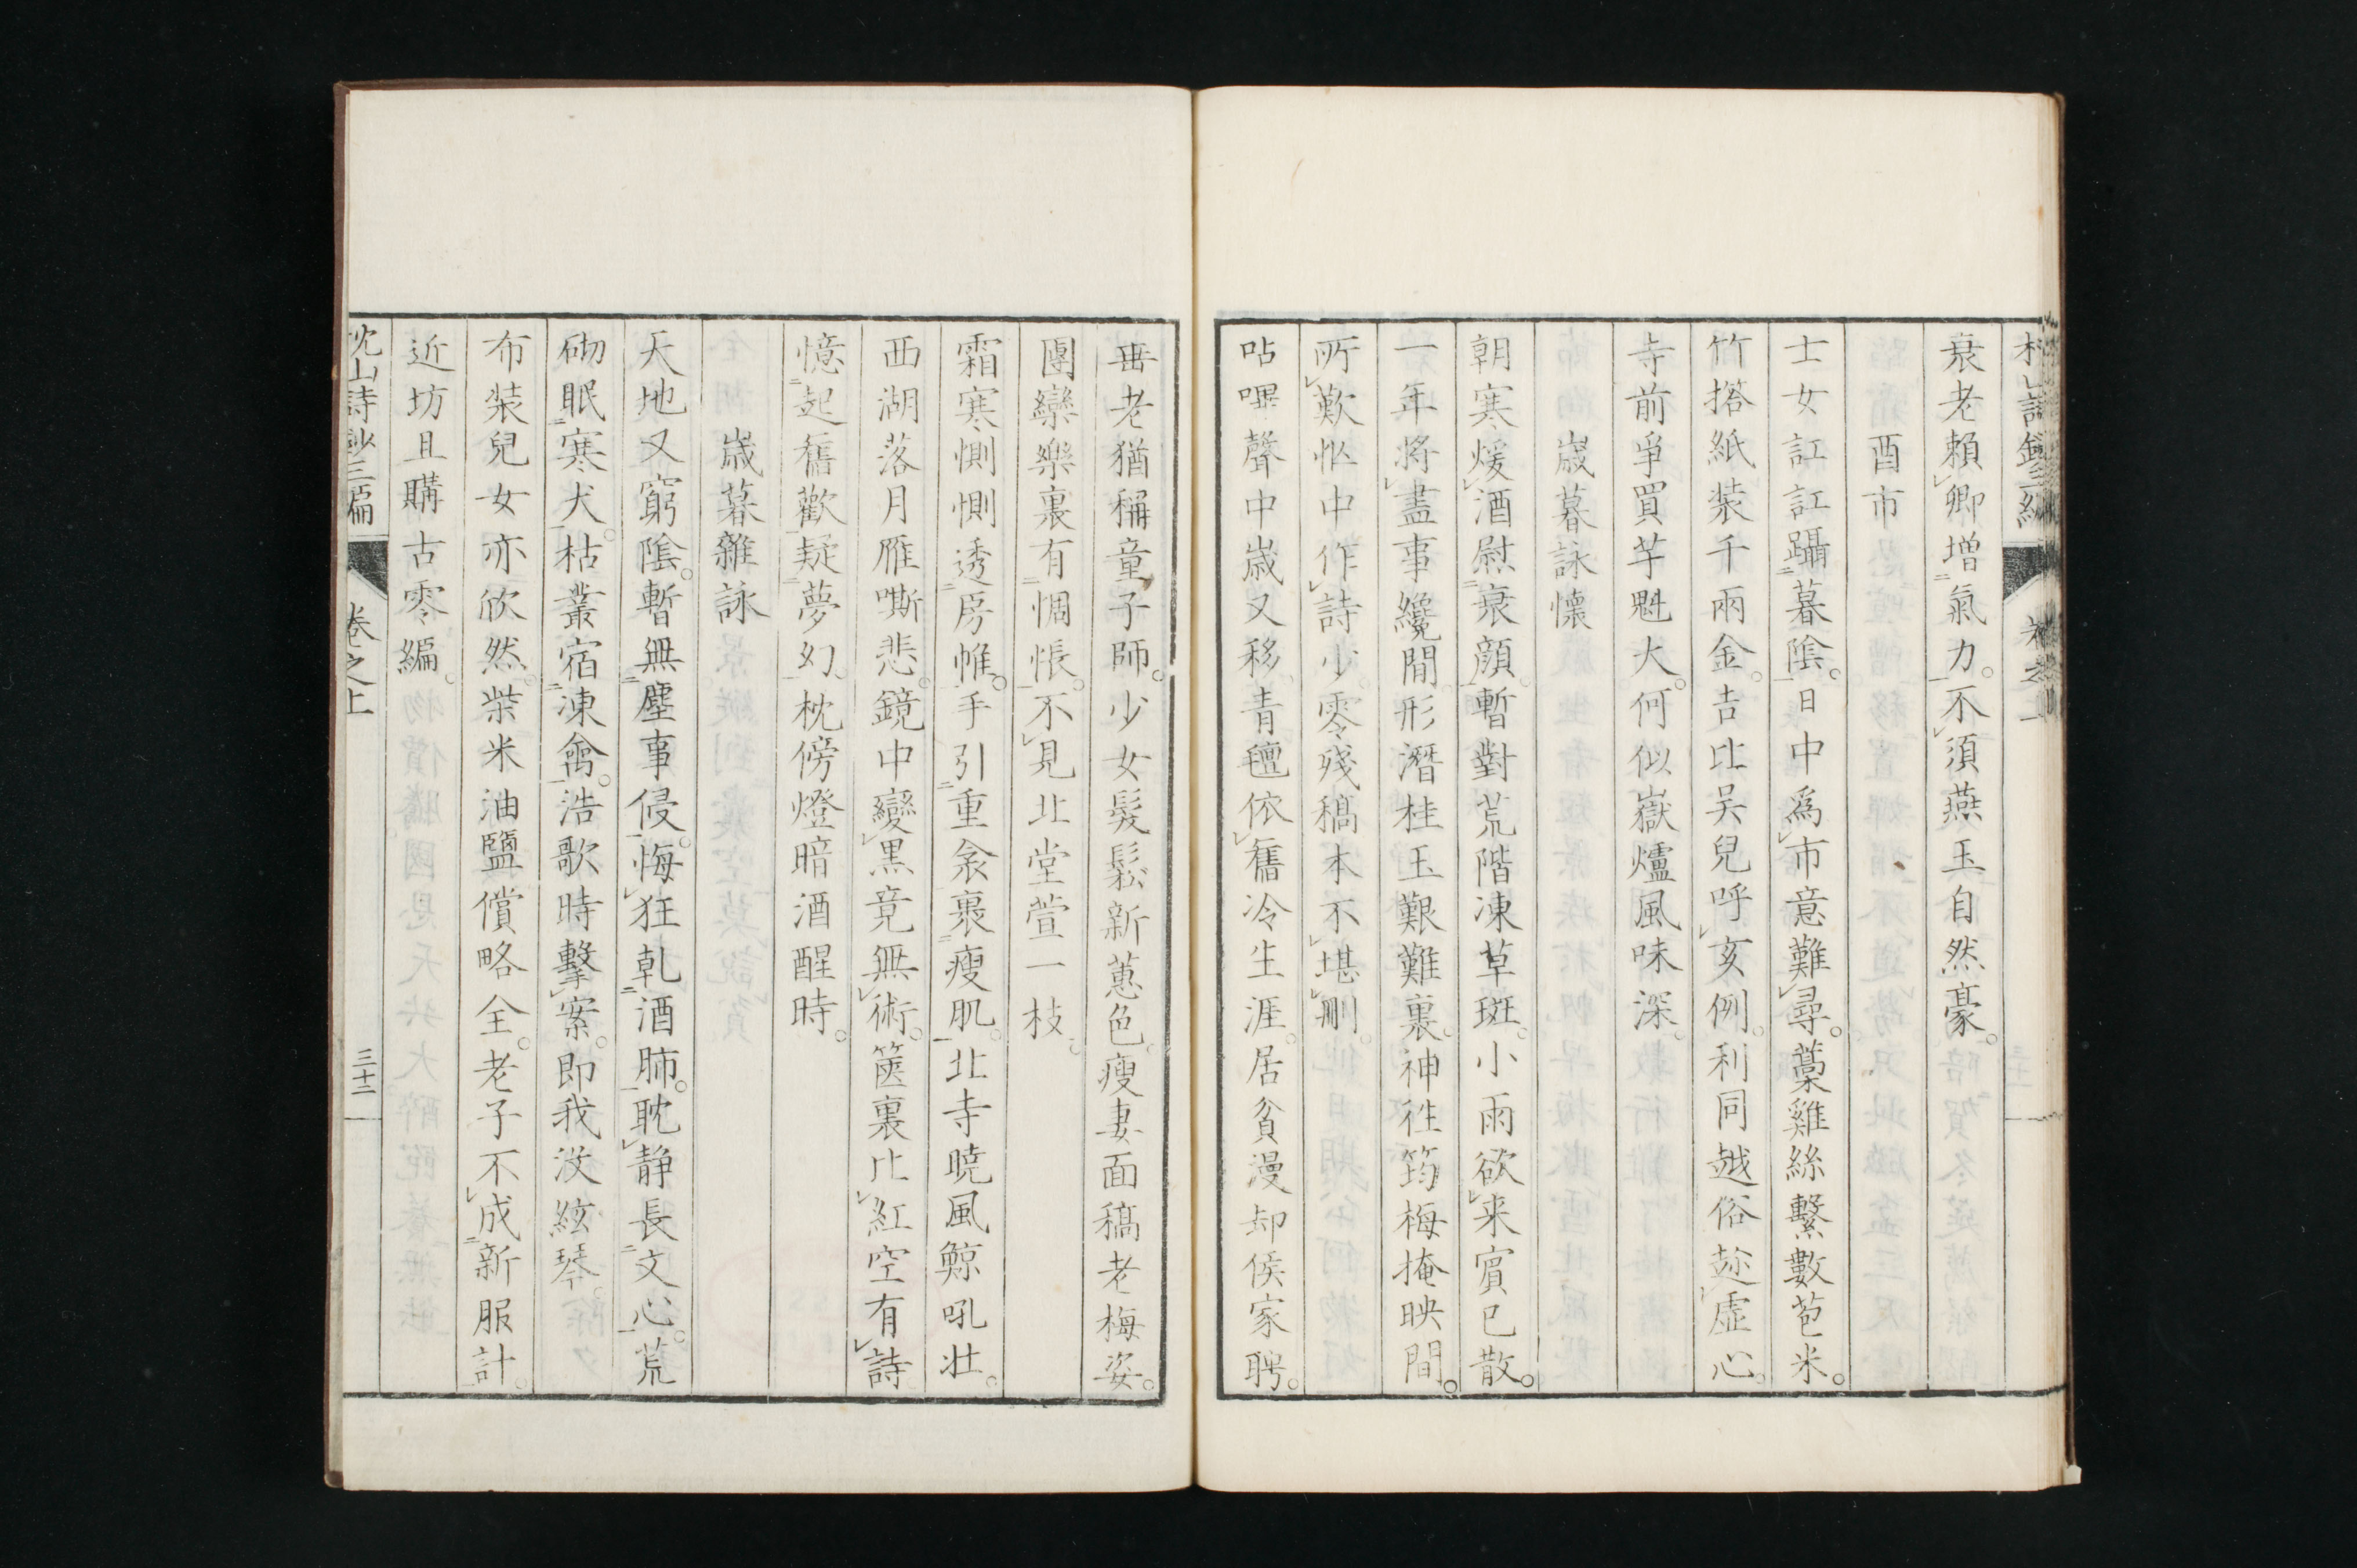 衰老頼卿増氣力不須燕玉自然豪
酉市
士女訌訌躡暮陰日中爲市意難尋藁雞絲繋數苞米
竹撘紙装千兩金吉比吴兒呼亥例利同越俗趂虚心
寺前爭買芋魁大何似嶽爐風味深
歳暮詠懐
朝寒煖酒慰衰顔暫對荒階凍草斑小雨欲来賔已散
一年将盡事纔閒形潛桂玉艱難裏神徃筠梅掩映間
所歎忙中作詩少零殘稿本不堪刪
呫嗶聲中歳又移青氊依舊冷生涯居貧漫却侯家聘
垂老猶稱童子師少女髮鬆新蕙色瘦妻面稿老梅姿
團欒樂裏有惆悵不見北堂萱一枝
霜寒惻惻透房帷手引重衾裹瘦肌北寺曉風鯨吼壮
西湖落月雁嘶悲鏡中變黒竟無術篋裏比紅空有詩
憶起舊歡疑夢幻枕傍燈暗酒醒時
歳暮雜詠
天地又窮陰暫無塵事侵悔狂乹酒肺耽静長文心荒
砌眠寒犬枯叢宿凍禽浩歌時擊案即我没絃琴
布装兒女亦欣然柴米油鹽償略全老子不成新服計
近坊且購古零編
枕山詩鈔三編 卷之上 三十二